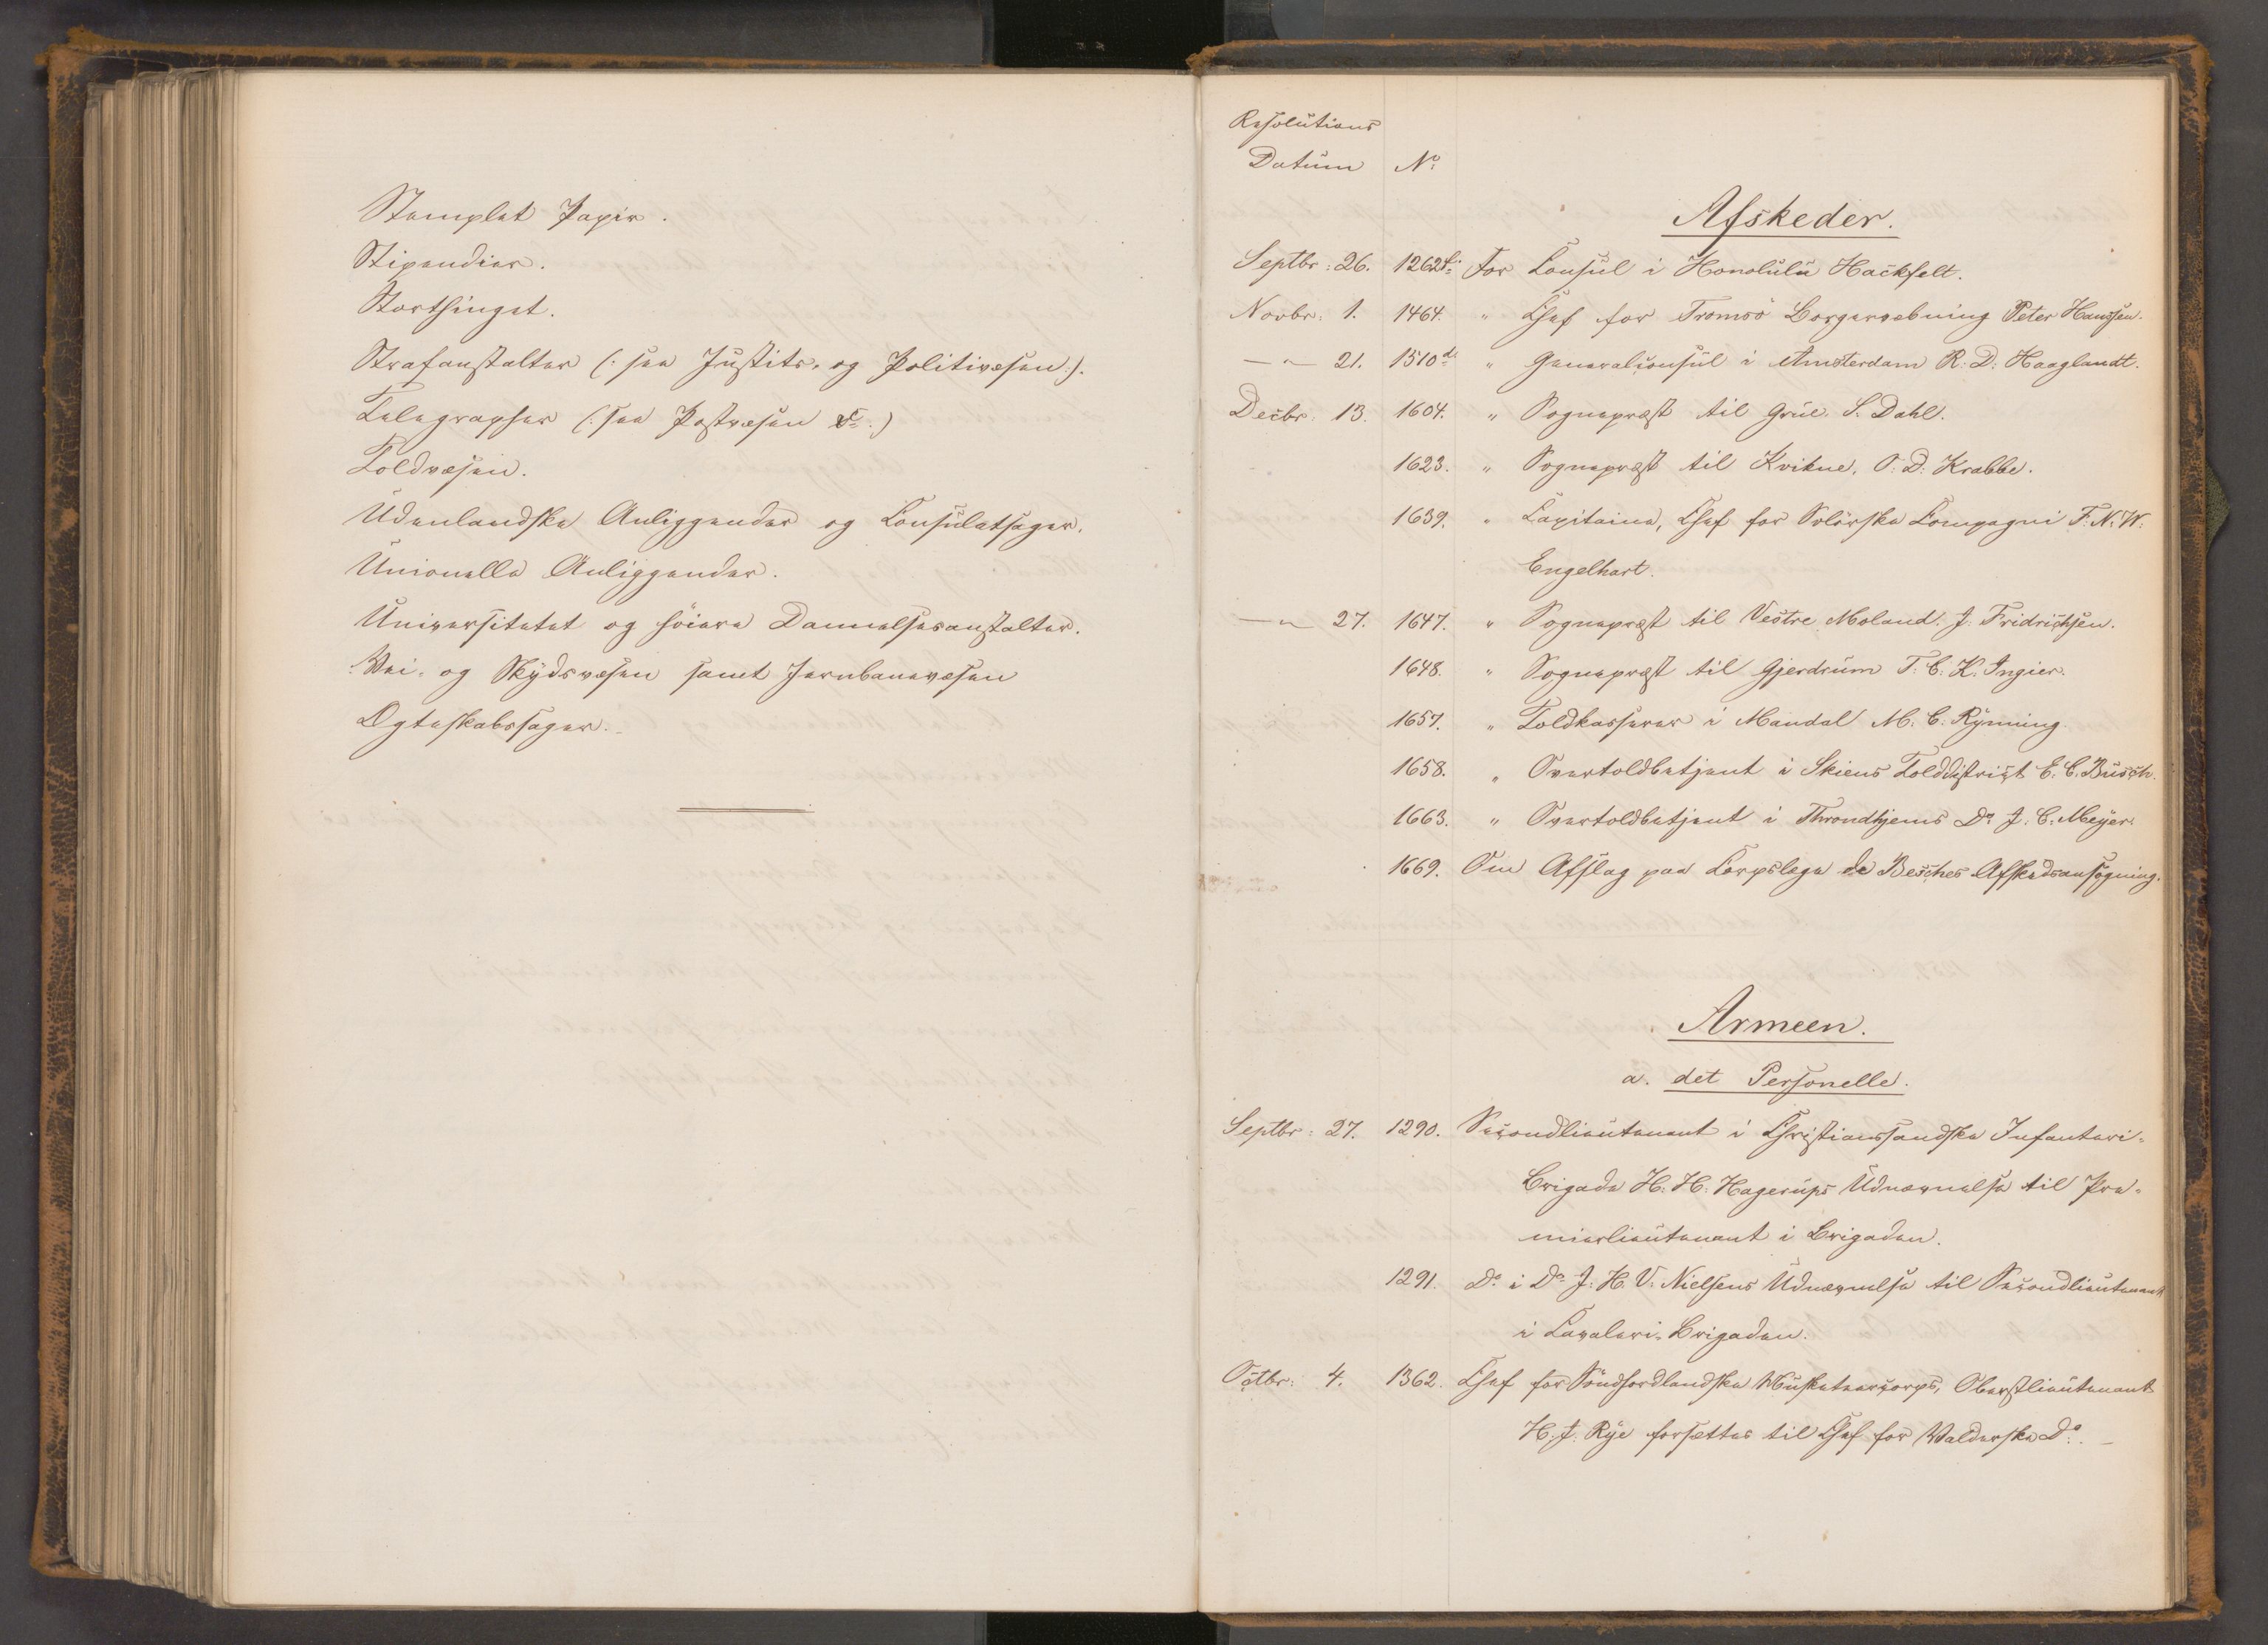 Stemplet Papir.
Stipendier.
Storthinget.
Strafanstalter (: see Justits- og Politivæsen :).
Telegrapher (: see Postvæsen &c :)
Toldvæsen.
Udenlandske Anliggender og Consulatsager.
Unionelle Anliggender.
Universitetet og høiere Dannelsesanstalter.
Vei- og Skydsvæsen samt Jernbanevæsen
Ægteskabssager.
Resolutions
Datum No
Afskeder.
Septbr: 26. 1262 For Consul i Honolulu Hackfelt.
Novbr: 1. 1464. " Chef for Tromsö Borgervæbning Peter Hanssen.
—"— 21. 1510 " Generalconsul i Amsterdam R: D: Haaglandt.
Decbr. 13. 1604. " Sognepræst til Grue. S. Dahl.
1623. " Sognepræst til Kvikne, O: D: Krabbe.
1639. " Capitaine, Chef for Solörske Compagni F: N: W:
Engelhart.
—"— 27. 1647. " Sognepræst til Vestre Moland. J. Fridrichsen.
1648. " Sognepræst til Gjerdrum T: C: K: Ingier.
1657. " Toldkasserer i Mandal M: C: Rynning.
1658. " Overtoldbetjent i Skiens Tolddistrict E: C: Busch.
1663. " Overtoldbetjent i Throndhjems Do J: C: Meyer.
1669. Om Afslag paa Corpslæge de Besches Afskedsansøgning.
Armeen.
a. det Personelle.
Septbr: 27. 1290. Secondlieutenant i Christianssandske Infanteri-
Brigade H: H: Hagerups Udnævnelse til Pre-
mierlieutenant i Brigaden.
1291. Do i Do J: H. V: Nielsens Udnævnelse til Secondlieutenant
i Cavaleri-Brigaden.
Octbr: 4. 1362. Chef for Söndhordlandske Musketeercorps, Oberstlieutenant
H: J: Rye forsættes til Chef for Valderske Do. —